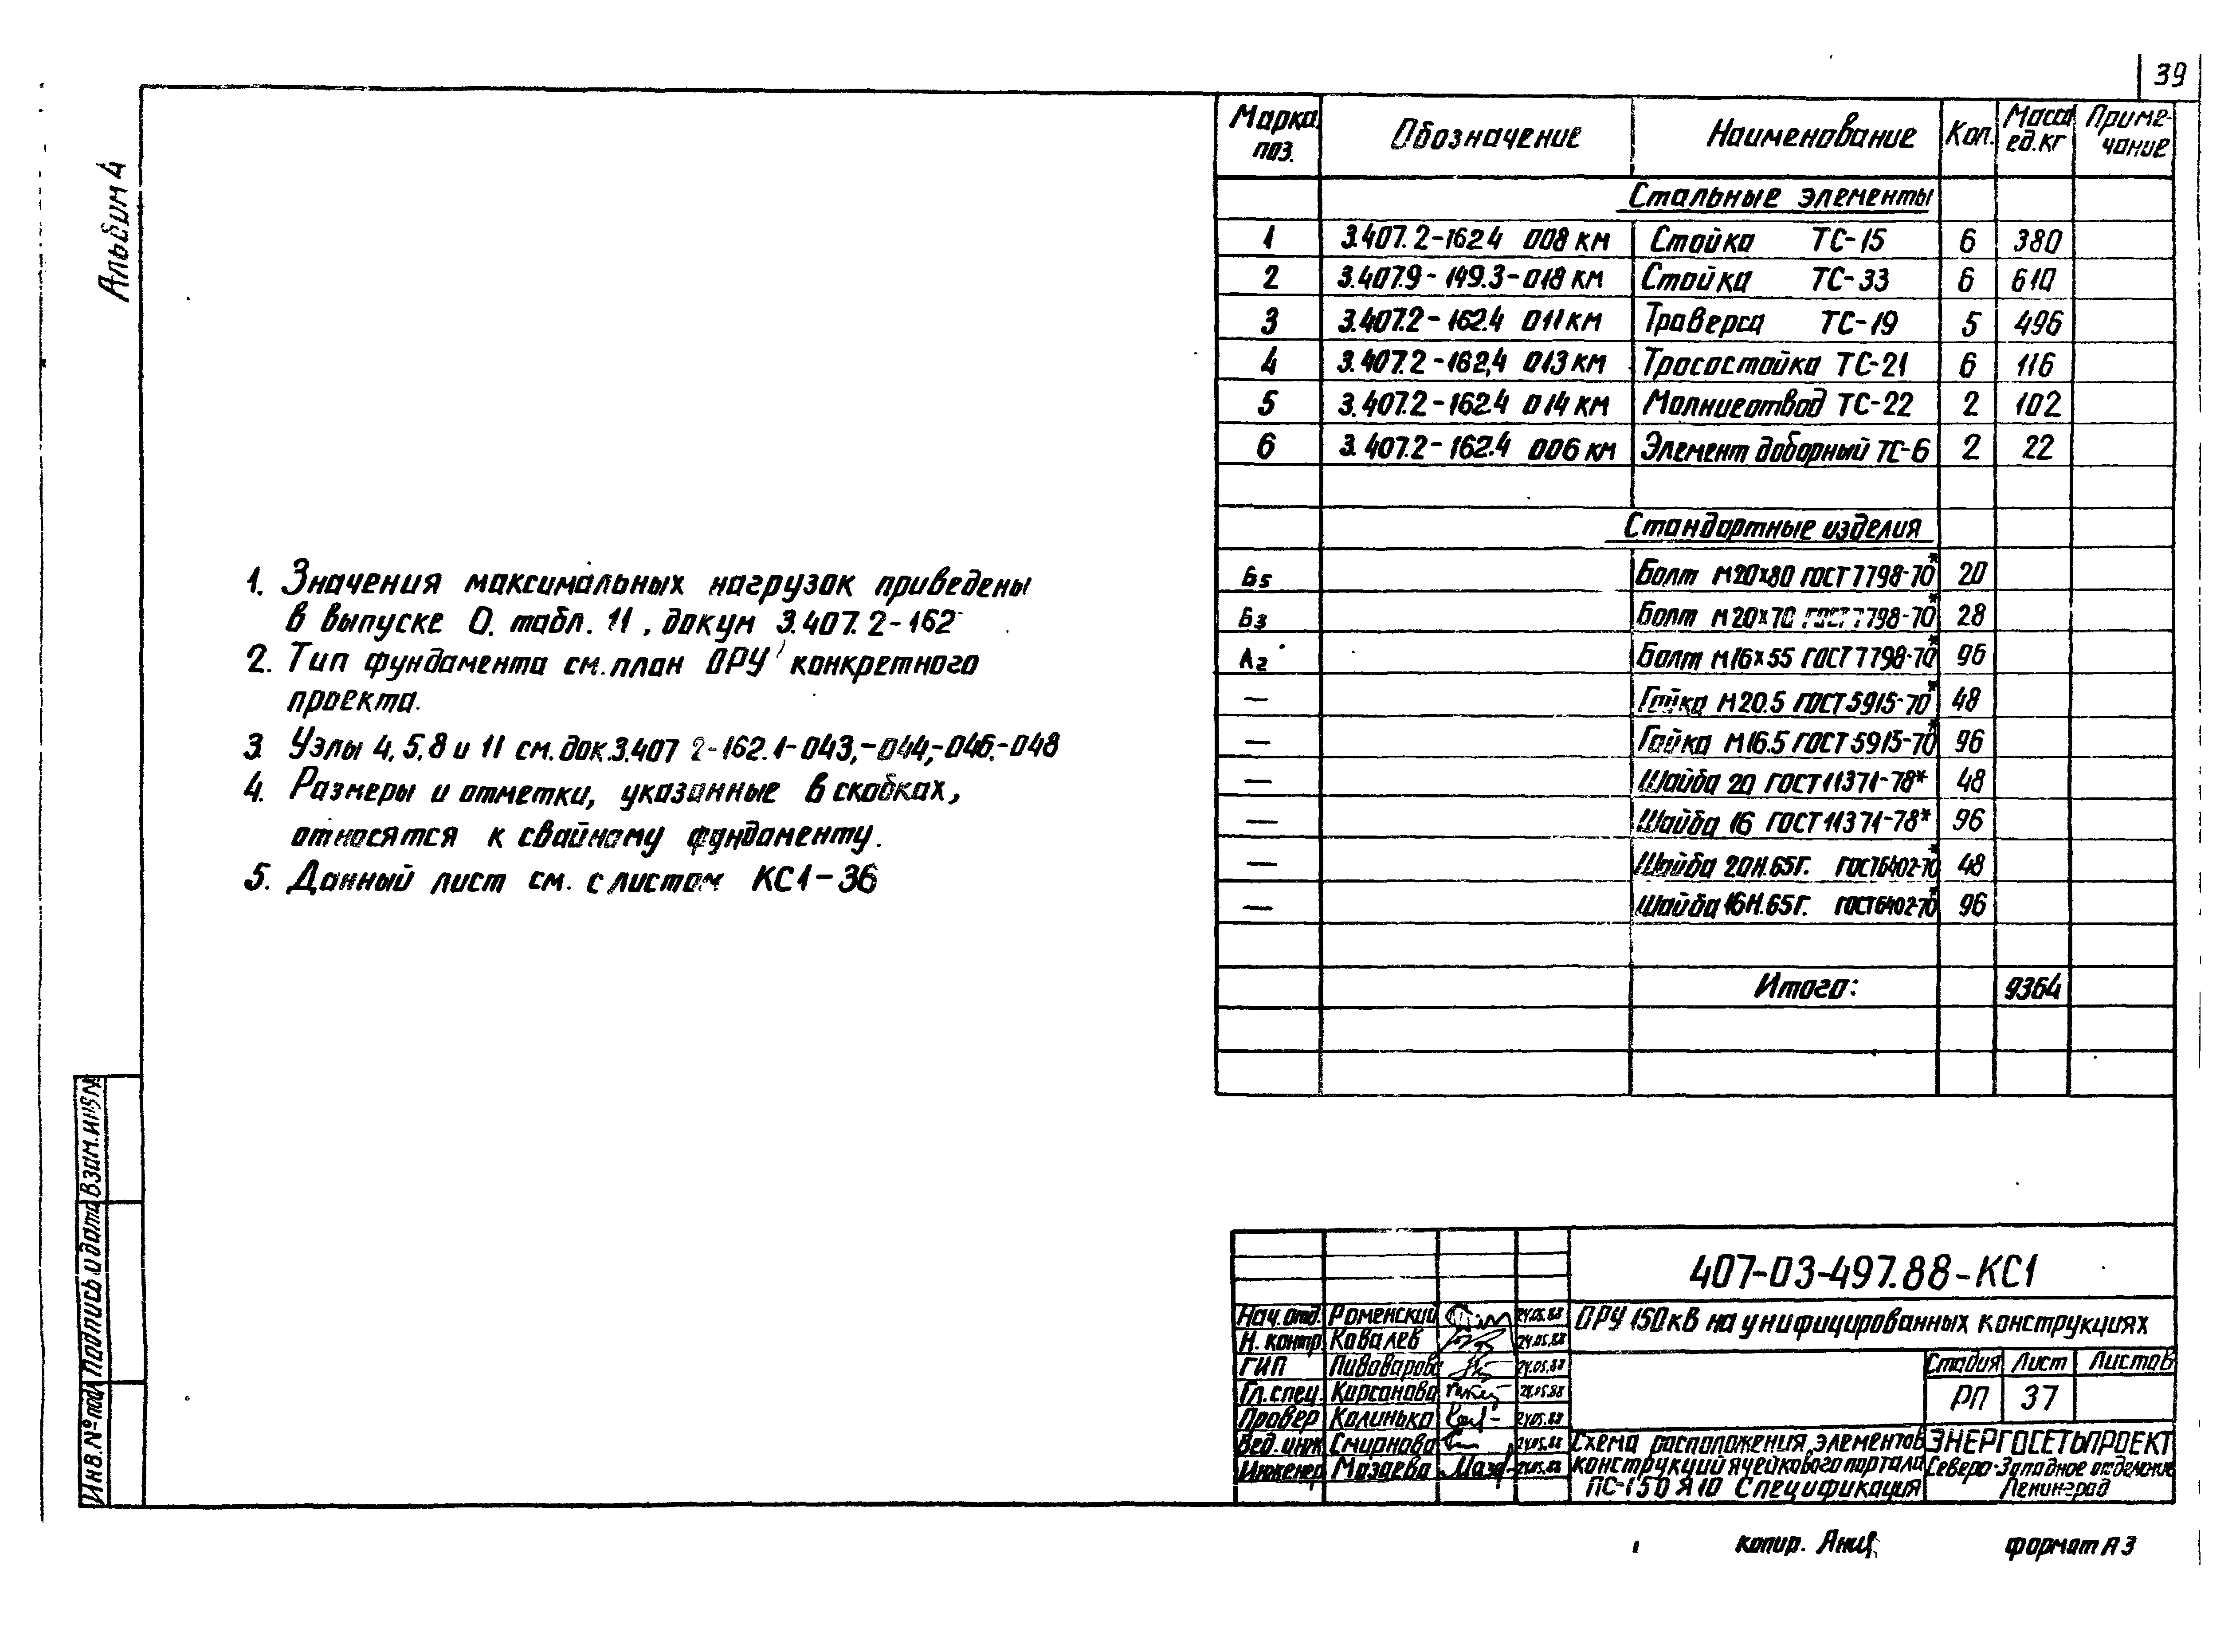 39
Альбом 4
Марка поз. Обозначение Наименование Кол. Масса ед.кг Приме-чание
Стальные элементы
1 3.407.2-162.4 008 КМ Стойка ТС-15 6 380
2 3.407.9-149.3-018 КМ Стойка ТС-33 6 610
3 3.407.2-162.4 011 КМ Траверса ТС-19 5 496
4 3.407.2-162,4 013 КМ Тросостойка ТС-21 6 116
5 3.407.2-162.4 014 КМ Молниеотвод ТС-22 2 102
6 3.407.2-162.4 006 КМ Элемент доборный ТС-6 2 22
Стандартные изделия
Б5 Болт М20х80 ГОСТ 7798-70* 20
Б3 Болт М20х70 ГОСТ 7798-70* 28
А2 Болт М16х55 ГОСТ 7798-70* 96
— Гайка М20.5 ГОСТ 5915-70* 48
— Гайка М16.5 ГОСТ 5915-70* 96
— Шайба 20 ГОСТ 11371-78* 48
— Шайба 16 ГОСТ 11371-78* 96
— Шайба 20Н.65Г. ГОСТ 6402-70* 48
— Шайба 16Н.65Г. ГОСТ 6402-70* 96
Итого: 9364
1. Значения максимальных нагрузок приведены
в выпуске 0. табл. 11, докум 3.407.2-162
2. Тип фундамента см. план ОРУ конкретного
проекта.
3. Узлы 4, 5, 8 и 11 см. док. 3.407 2-162.1-043,-044,-046,-048
4. Размеры и отметки, указанные в скобках,
относятся к свайному фундаменту.
5. Данный лист см. с листом КС1-36
Взам. инв №
Подпись и дата
Инв. № подл
407-03-497.88-КС1
Нач. отд. Роменский 24.05.88
Н. контр Ковалев 24.05.88
ГИП Пивоварова 24.05.88
Гл. спец. Кирсанова 24.05.88
Провер Калинько 24.05.88
Вед. инж Смирнова 24.05.88
Инженер Мазаева 24.05.88
ОРУ 150кВ на унифицированных конструкциях
Стадия Лист Листов
РП 37
Схема расположения элементов
конструкций ячейкового портала
ПС-150 Я10 Спецификация
ЭНЕРГОСЕТЬПРОЕКТ
Северо-Западное отделение
Ленинград
копир. формат А3